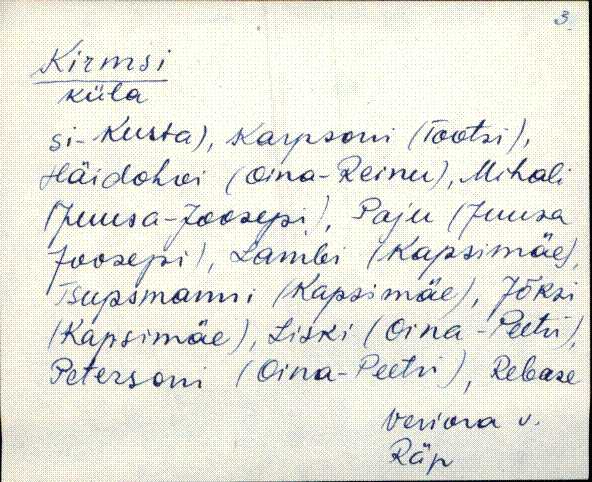 3.
Kirmsi
küla
si-Kusta), Karpsoni (Tootsi),
Häidohvi (Oina-Reinu), Mihali
(Juusa-Joosepi), Paju (Juusa
Joosepi), Lambi (Kapsimäe),
Tsupsmanni (Kapsimäe), Jõksi
(Kapsimäe), Liski (Oina-Peetri),
Petersoni (Oina-Peetri), Rebase
Veriora v.
Räp